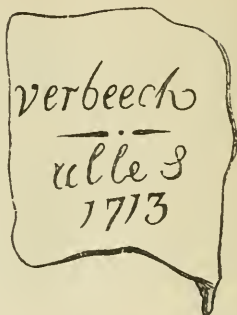 verbeech
ulle S
1713